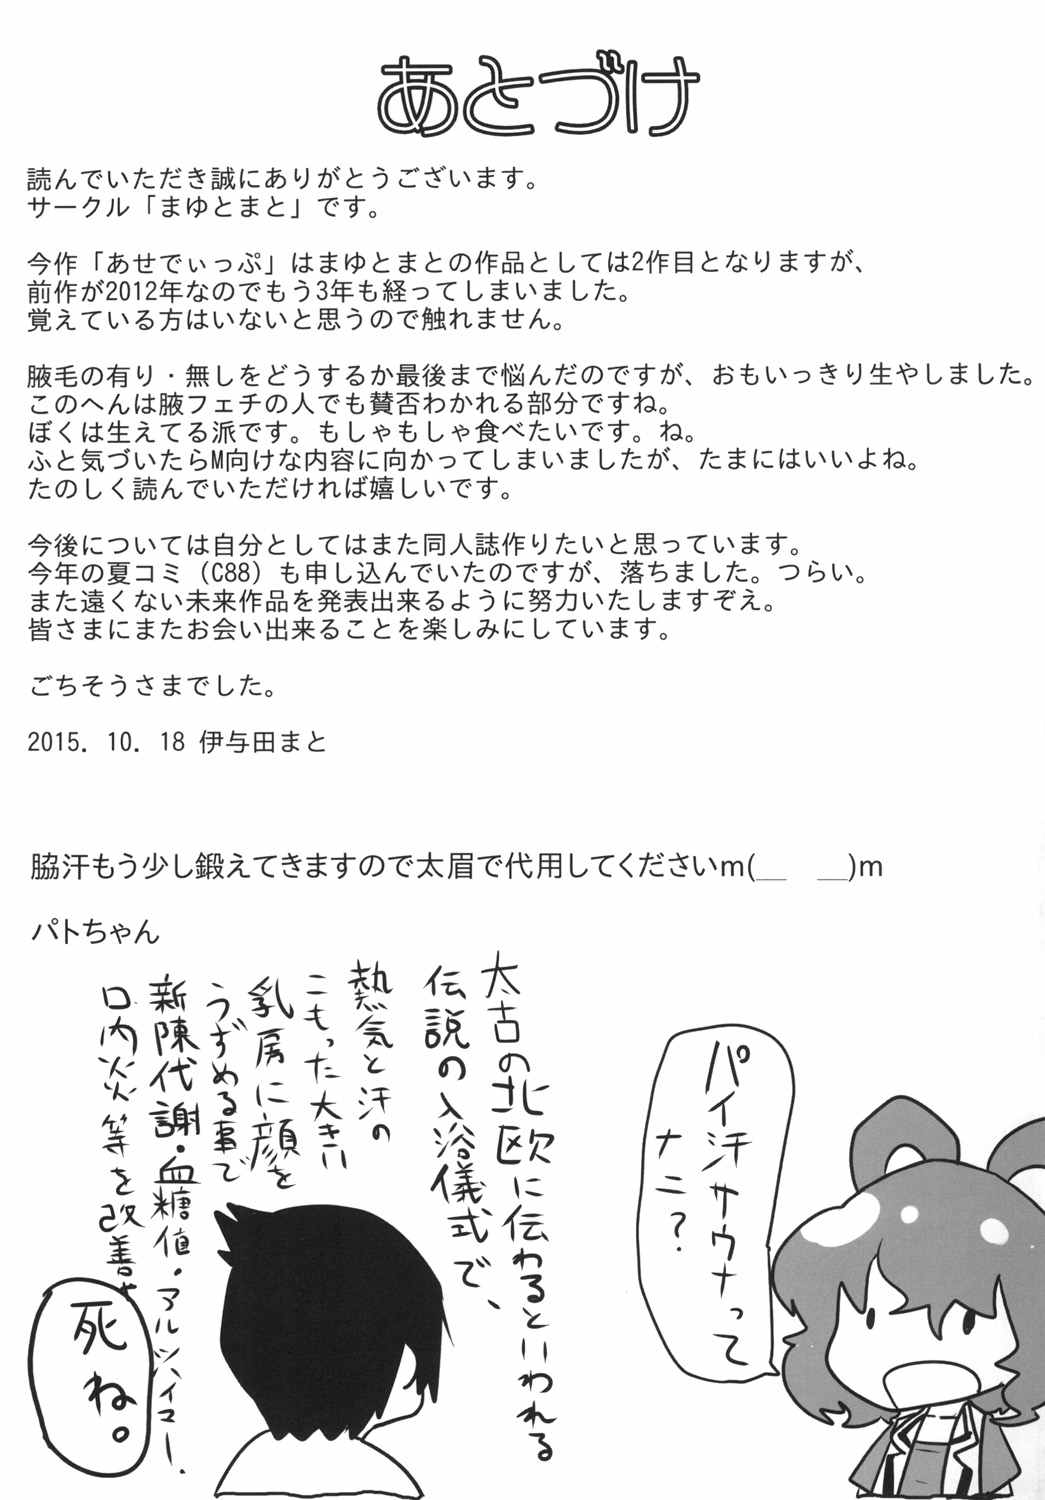 あとづけ
読んでいただき誠にありがとうございます。
サークル「まゆとまと」です。
今作「あせでぃっぷ」はまゆとまとの作品としては2作目となりますが、
前作が2012年なのでもう3年も経ってしまいました。
覚えている方はいないと思うので触れません。
腋毛の有り・無しをどうするか最後まで悩んだのですが、おもいっきり生やしました。
このへんは腋フェチの人でも賛否わかれる部分ですね。
ぼくは生えてる派です。もしゃもしゃ食べたいです。ね。
ふと気づいたらM向けな内容に向かってしまいましたが、たまにはいいよね。
たのしく読んでいただければ嬉しいです。
今後については自分としてはまた同人誌作りたいと思っています。
今年の夏コミ（C88）も申し込んでいたのですが、落ちました。つらい。
また遠くない未来作品を発表出来るように努力いたしますぞえ。
皆さまにまたお会い出来ることを楽しみにしています。
ごちそうさまでした。
2015. 10. 18 伊与田まと
脇汗もう少し鍛えてきますので太眉で代用してくださいm(__　__)m
パトちゃん
パイ汗サウナって
ナニ？
太古の北欧に伝わるといわれる
伝説の入浴儀式で、
熱気と汗の
こもった大きい
乳房に顔を
うずめる事で
新陳代謝・血糖値・アルツハイマー・
口内炎等を改善
死
ね。